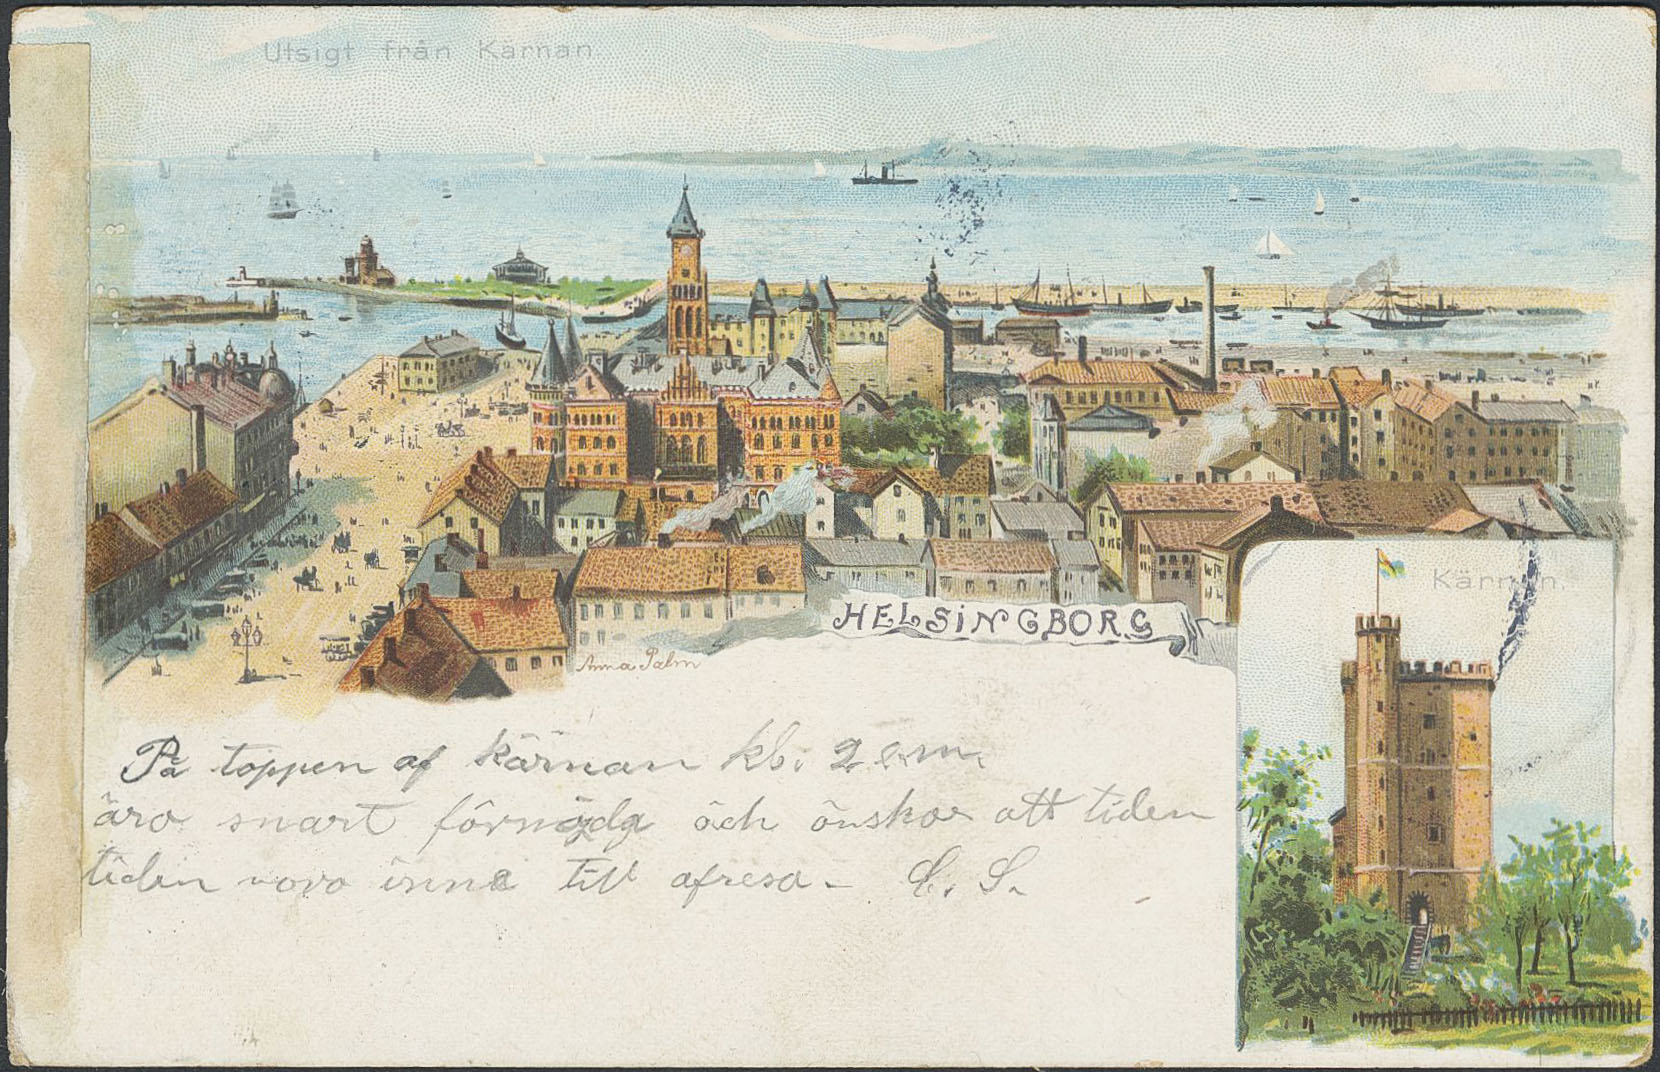 Utsigt från Kärnan.
HELSINGBORG
Kärnan.
Anna Palm
På toppen af kärnan kl. 2 e.m.
äro snart förnögda och önskar att tiden
tiden voro inne till afresa. C. S.